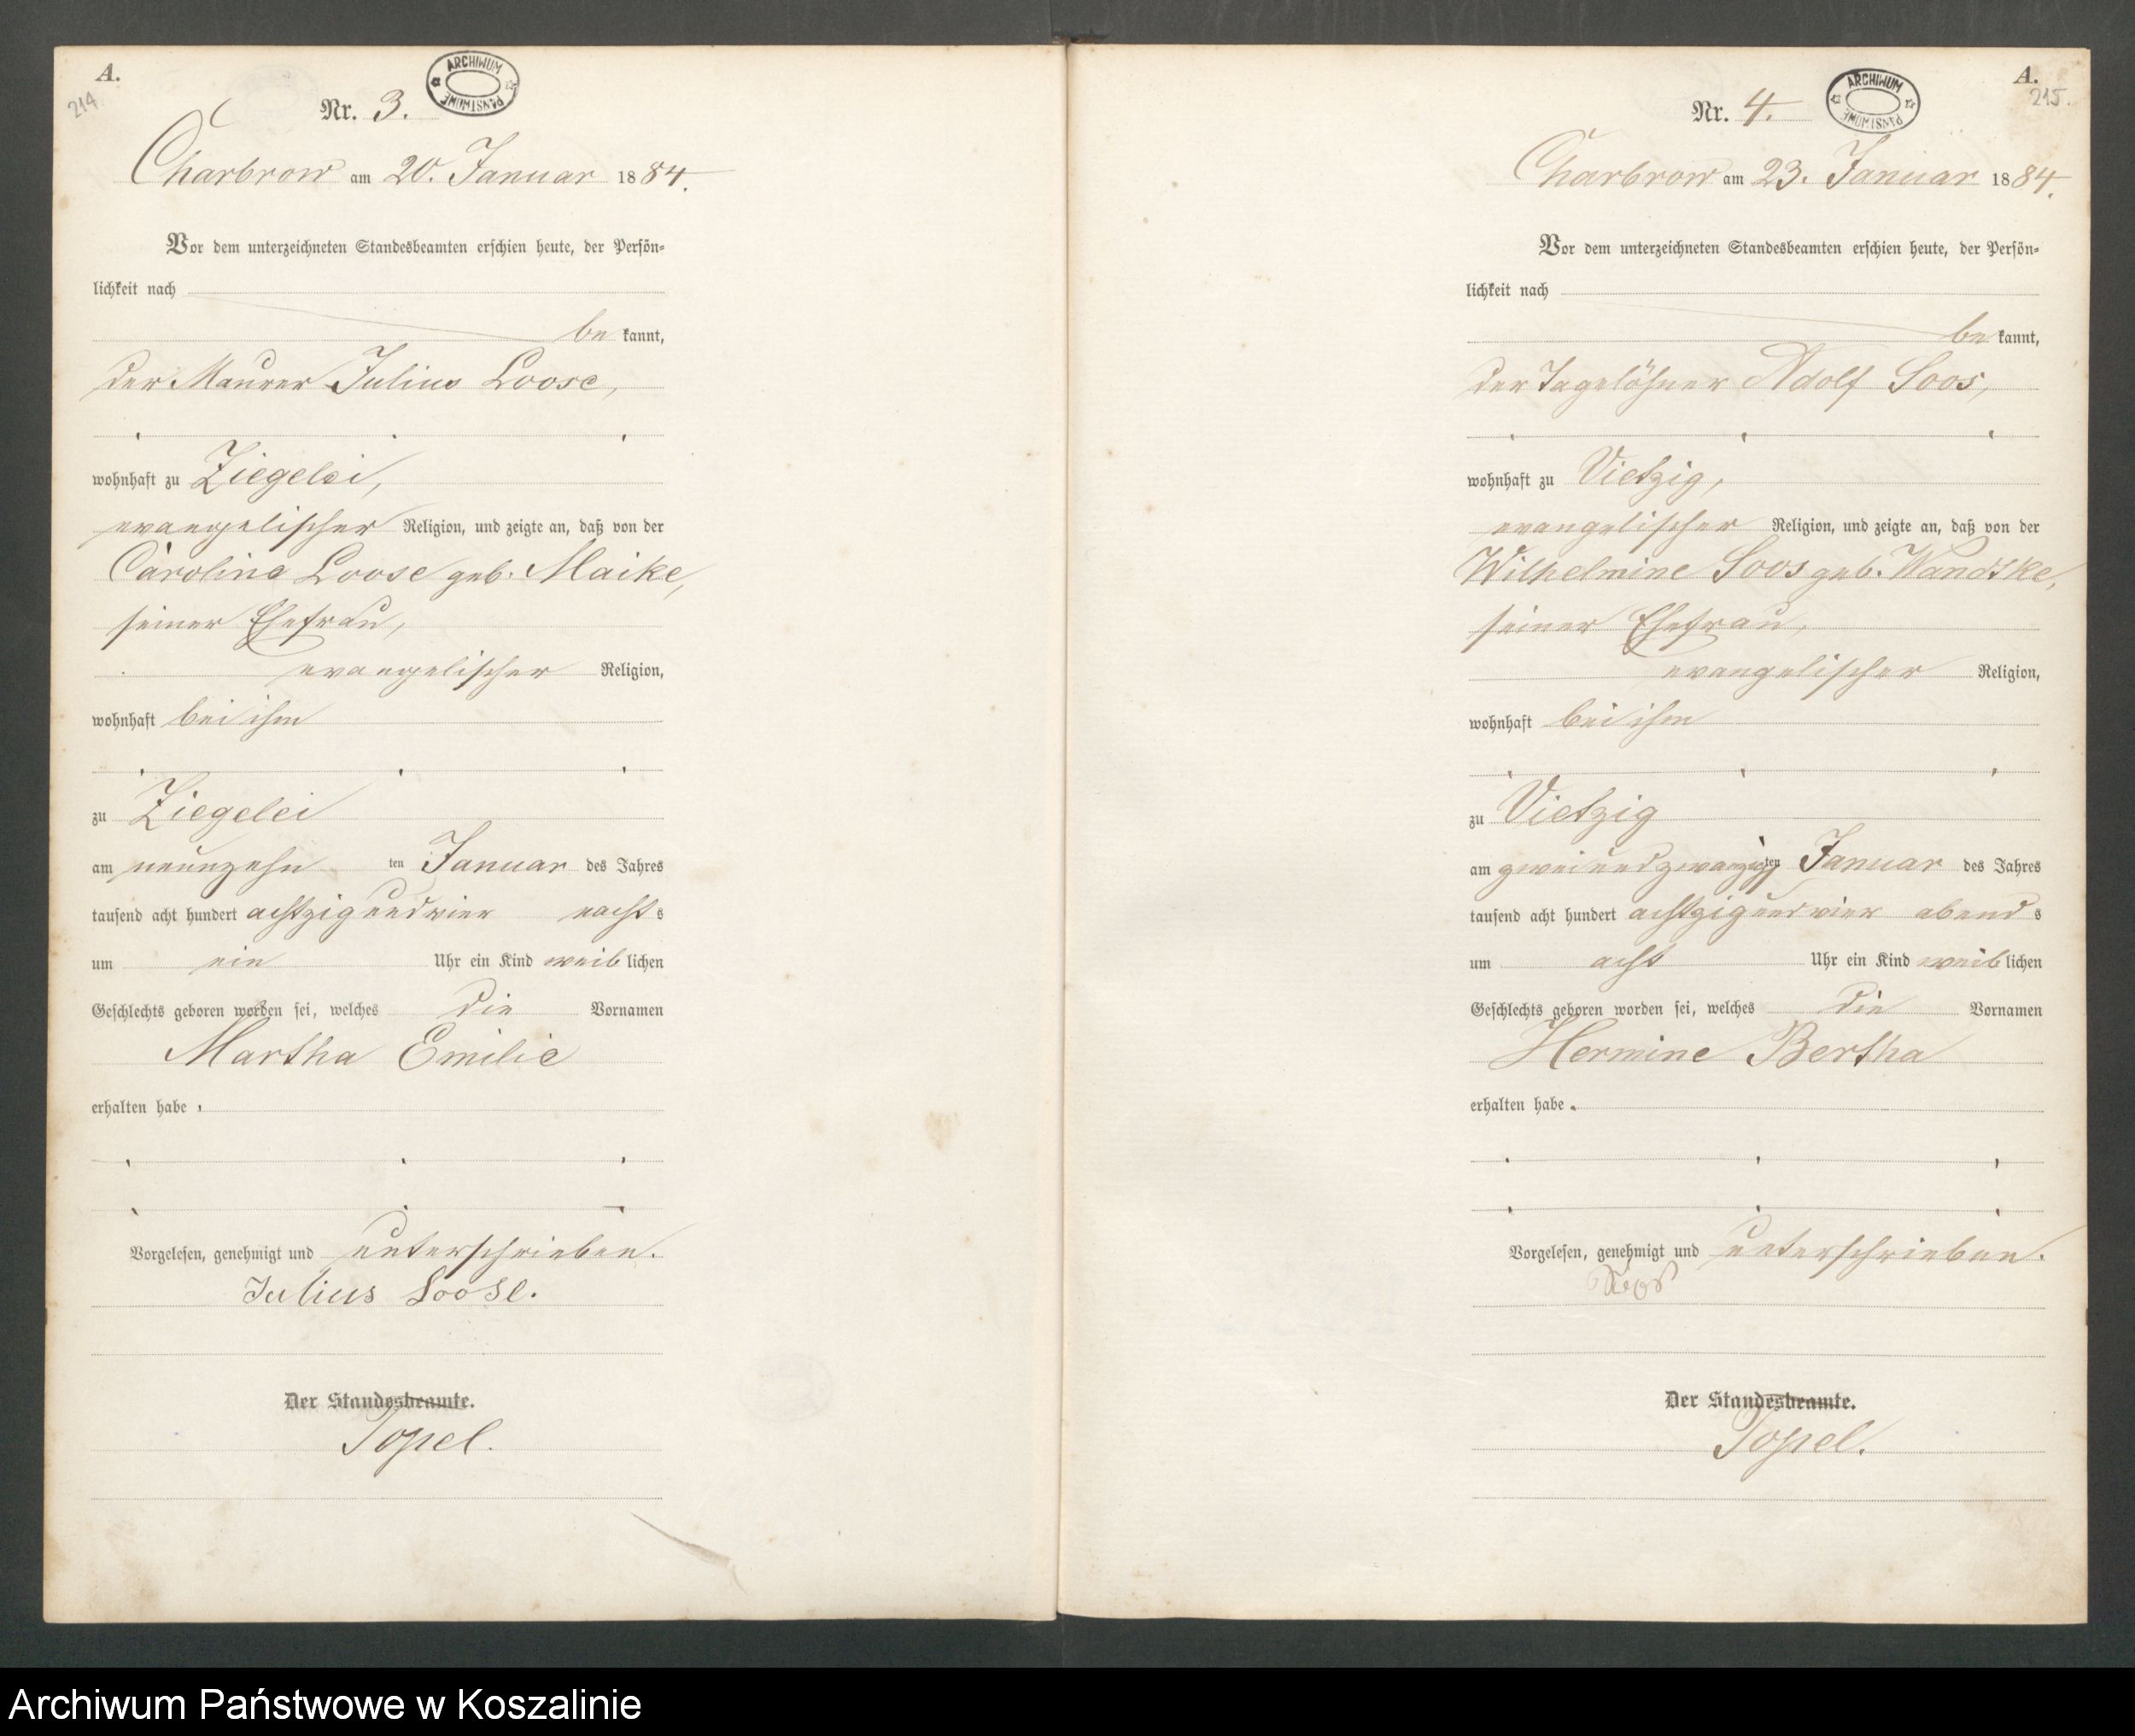 A.
214
Nr. 3.
ARCHIWUM PAŃSTWOWE
Charbrow am 20. Januar 1884.
Vor dem unterzeichneten Standesbeamten erschien heute, der Persön-
lichkeit nach
be kannt,
der Maurer Julius Loose,
wohnhaft zu Ziegelei,
evangelischer Religion, und zeigte an, daß von der
Caroline Loose geb. Maike,
seiner Ehefrau,
evangelischer Religion,
wohnhaft bei ihm
zu Ziegelei
am neunzehn ten Januar des Jahres
tausend acht hundert achtzig und vier nachts
um ein Uhr ein Kind weiblichen
Geschlechts geboren worden sei, welches die Vornamen
Martha Emilie
erhalten habe.
Vorgelesen, genehmigt und unterschrieben.
Julius Loose.
Der Standesbeamte.
Topel.
A.
215.
Nr. 4.
ARCHIWUM PAŃSTWOWE
Charbrow am 23. Januar 1884.
Vor dem unterzeichneten Standesbeamten erschien heute, der Persön-
lichkeit nach
be kannt,
der Tagelöhner Adolf Soos,
wohnhaft zu Vietzig,
evangelischer Religion, und zeigte an, daß von der
Wilhelmine Soos geb. Wandtke,
seiner Ehefrau,
evangelischer Religion,
wohnhaft bei ihm
zu Vietzig
am zweiundzwanzigsten Januar des Jahres
tausend acht hundert achtzig und vier abends
um acht Uhr ein Kind weiblichen
Geschlechts geboren worden sei, welches die Vornamen
Hermine Bertha
erhalten habe.
Vorgelesen, genehmigt und unterschrieben.
Der Standesbeamte.
Topel.
Archiwum Państwowe w Koszalinie